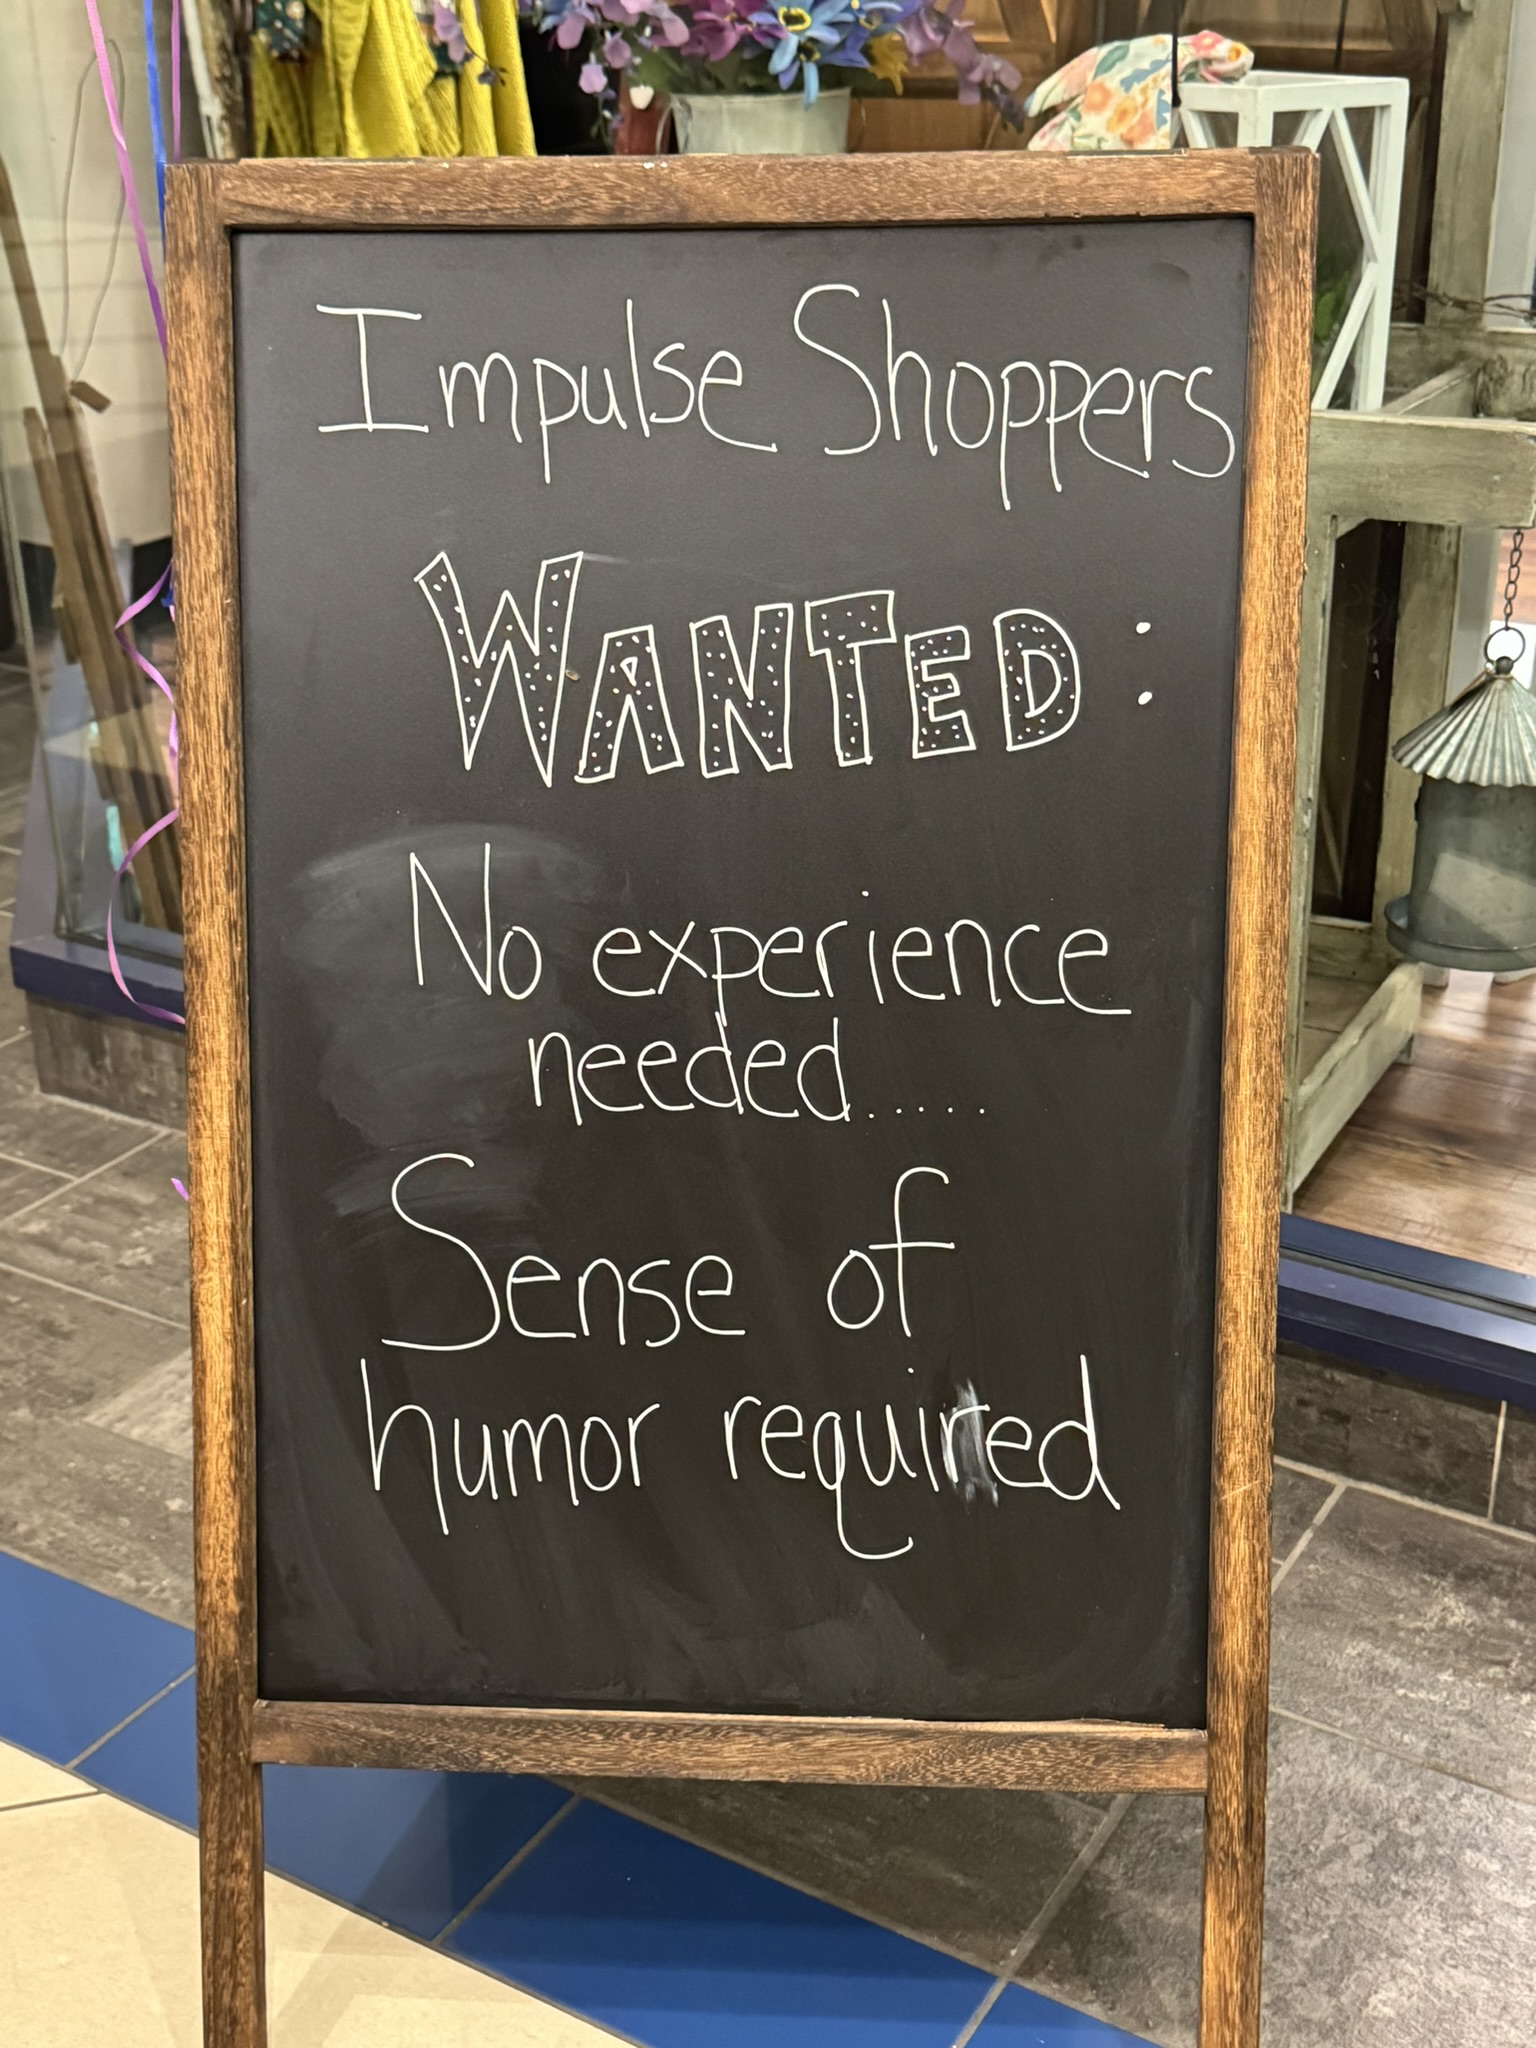 Impulse Shoppers
WANTED:
No experience
needed......
Sense of
humor required